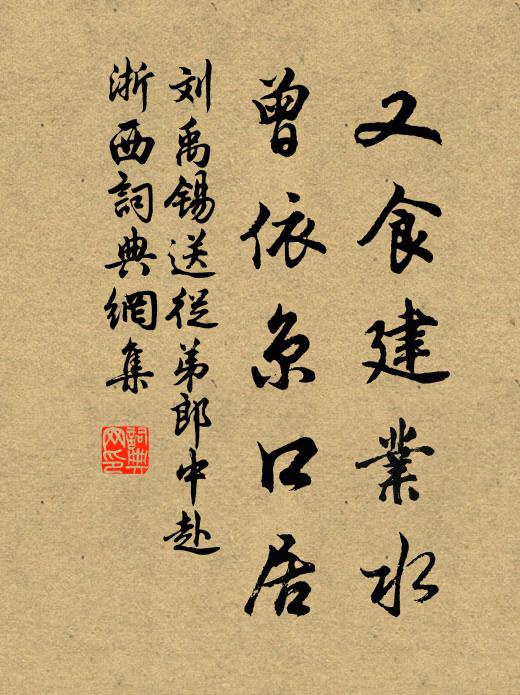 又食建業水
曾依京口居
刘禹锡送從弟郎中赴
浙西詞典網集
詞典
网印